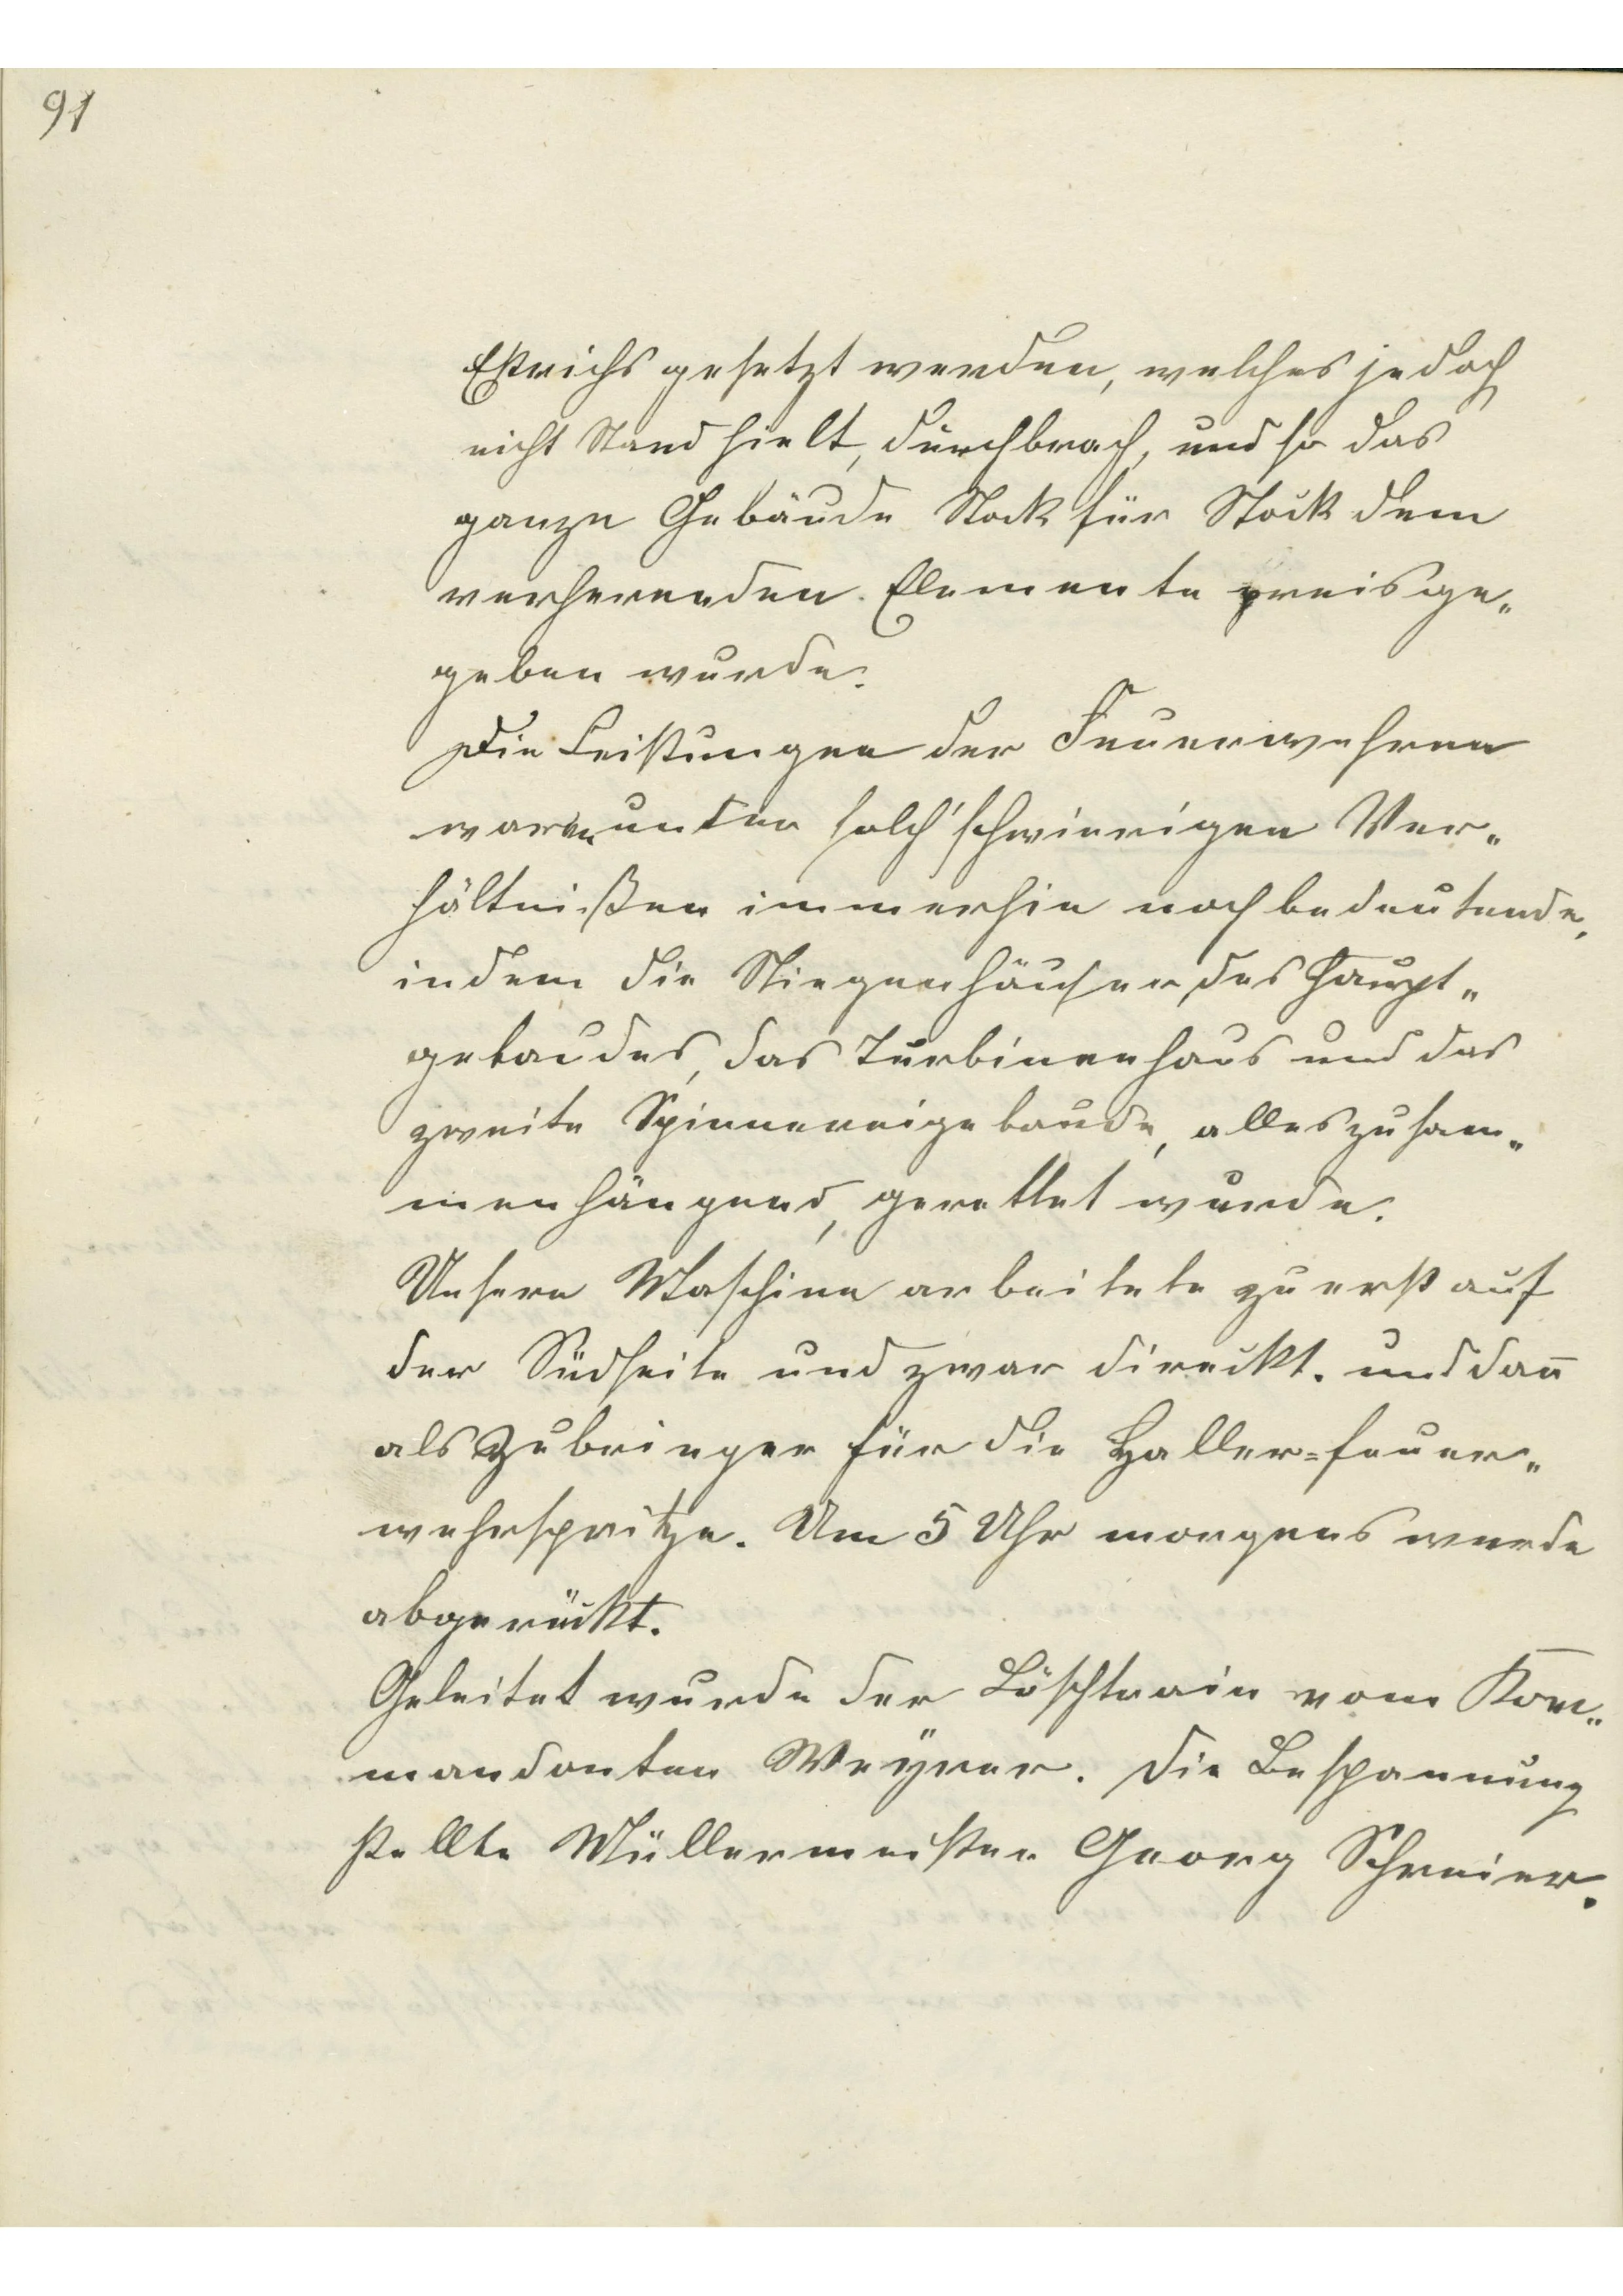 91
Estrichs gesetzt werden, welches jedoch
nicht Stand hielt, durchbrach, und so das
ganze Gebäude Stock für Stock dem
verherenden Elemente preisge„
geben wurde.
Die Leistungen der Feuerwehren
waren unter solch' schwierigen Ver„
hältnißen immerhin noch bedeutende,
indem die Stiegenhäuser des Haupt„
gebaudes, das Turbinenhaus und das
zweite Spinnereigebaude, alles zusam„
menhängend, gerettet wurde.
Unsere Maschine arbeitete zuerst auf
der Südseite und zwar direckt. und dan̄
als Zubringer für die Haller=feuer„
wehrspritze. Um 5 Uhr morgens wurde
abgerückt.
Geleitet wurde der Löschtrain vom Kom„
mandanten Weyrer. Die Bespannung
stellte Müllermeister Georg Schreier.